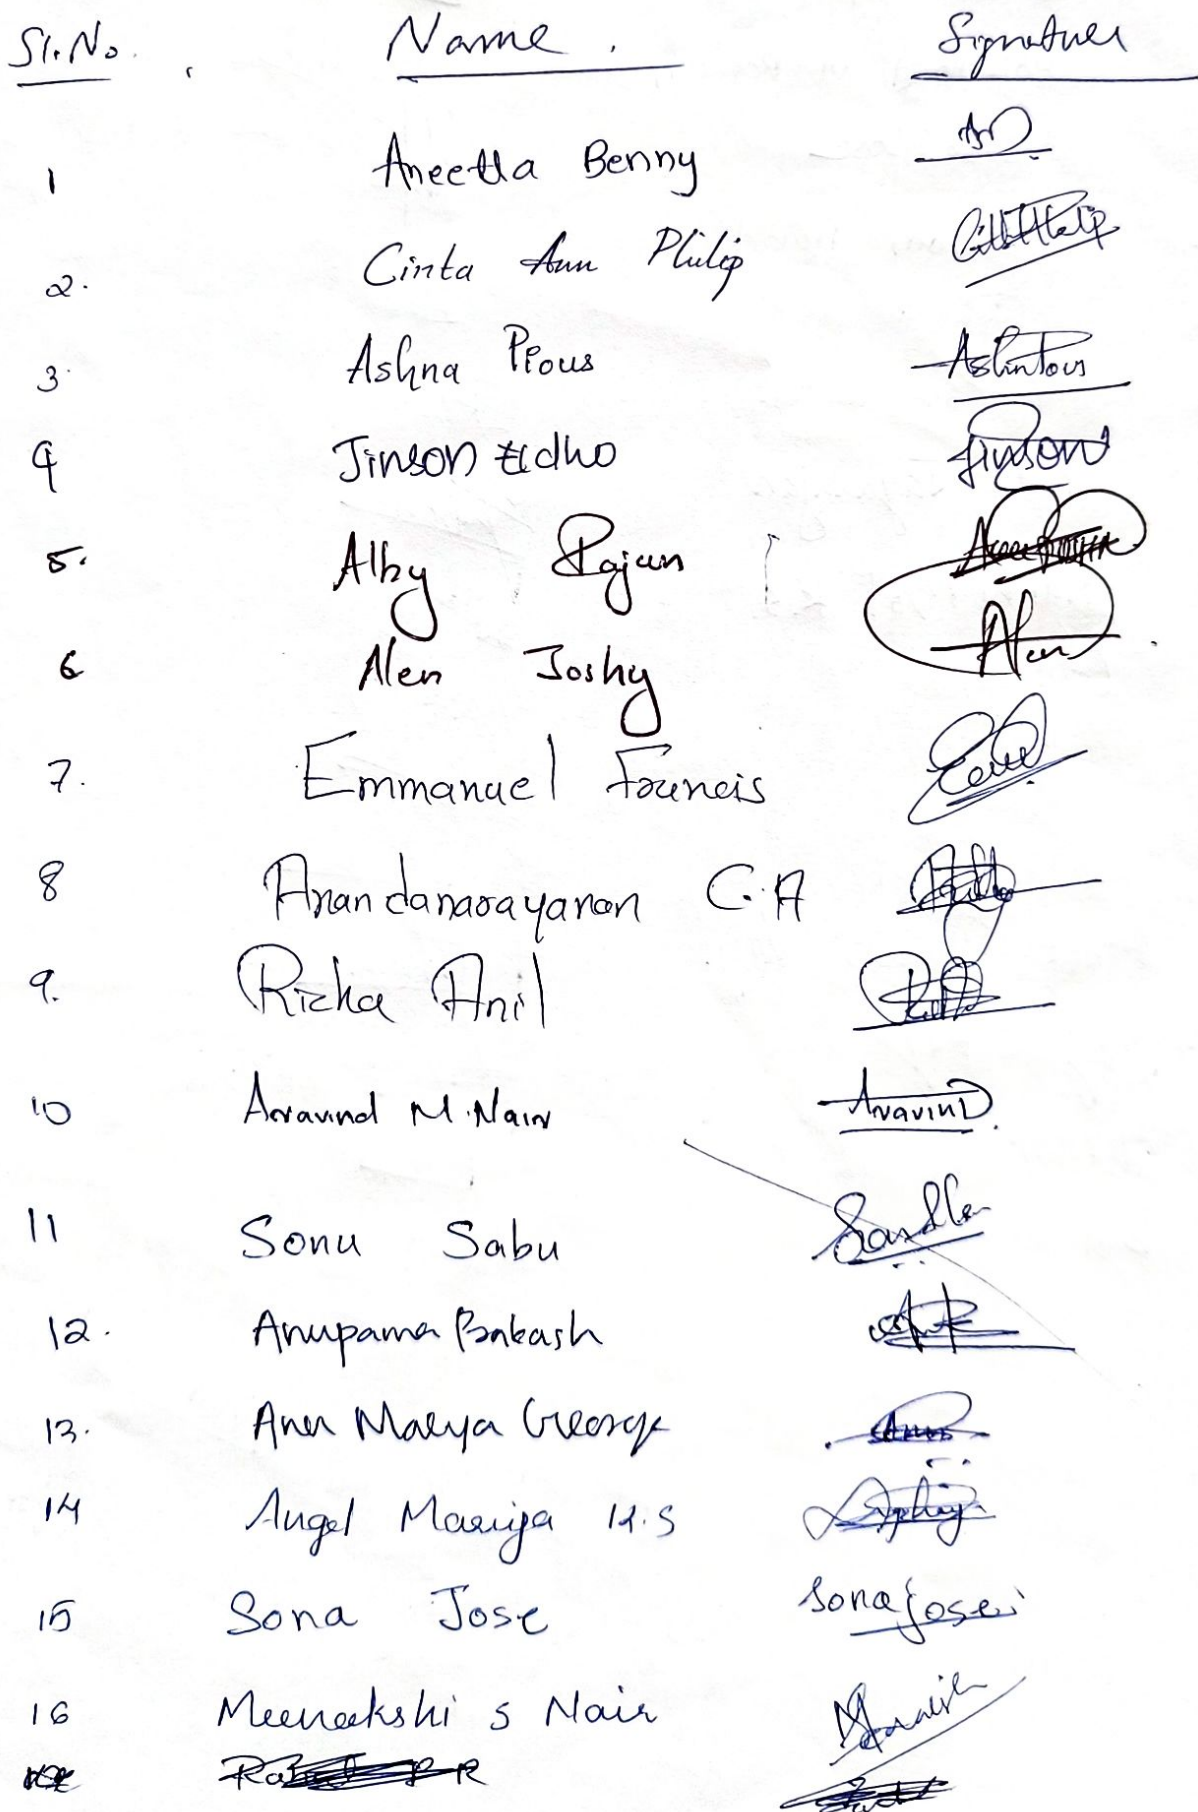 Sl.No. Name. Signature
1 Aneetta Benny
2. Cinta Ann Philip
3. Ashna Pious
4 Jinson Eldho Jinson
5. Alby Rajan
6 Alen Joshy Alen
7. Emmanuel Francis
8 Anandanarayanan C.A
9. Richa Anil
10 Aravind M. Nair Aravind
11 Sonu Sabu
12. Anupama Prakash
13. Ann Mariya George
14 Angel Mariya K.S
15 Sona Jose Sona Jose
16 Meenakshi S Nair